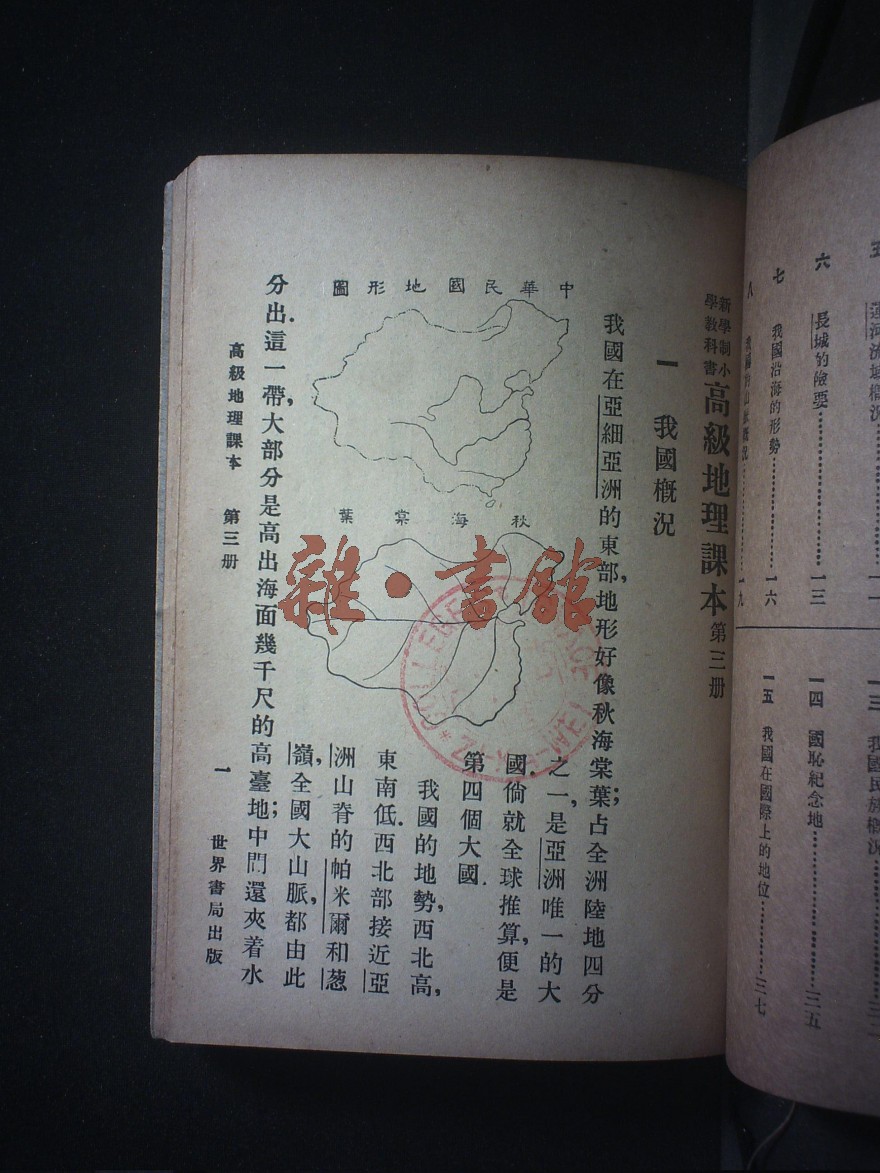 五 運河流域概況……一一
六 長城的險要……一三
七 我國沿海的形勢……一六
八 我國的山脈概況……一九
一三 我國民族概況
一四 國恥紀念地……三五
一五 我國在國際上的地位……三七
新學制小
學教科書
高級地理課本第三册
一 我國槪況
我國在亞細亞洲的東部,地形好像秋海棠葉;占全洲陸地四分
之一,是亞洲唯一的大
國.倘就全球推算,便是
第四個大國.
我國的地勢,西北高,
東南低.西北部接近亞
洲山脊的帕米爾和葱
嶺,全國大山脈,都由此
中華民國地形圖
秋海棠葉
分出.這一帶,大部分是高出海面幾千尺的高臺地;中間還夾着水
高級地理課本 第三册 一 世界書局出版
雜·書館
COLLEGE